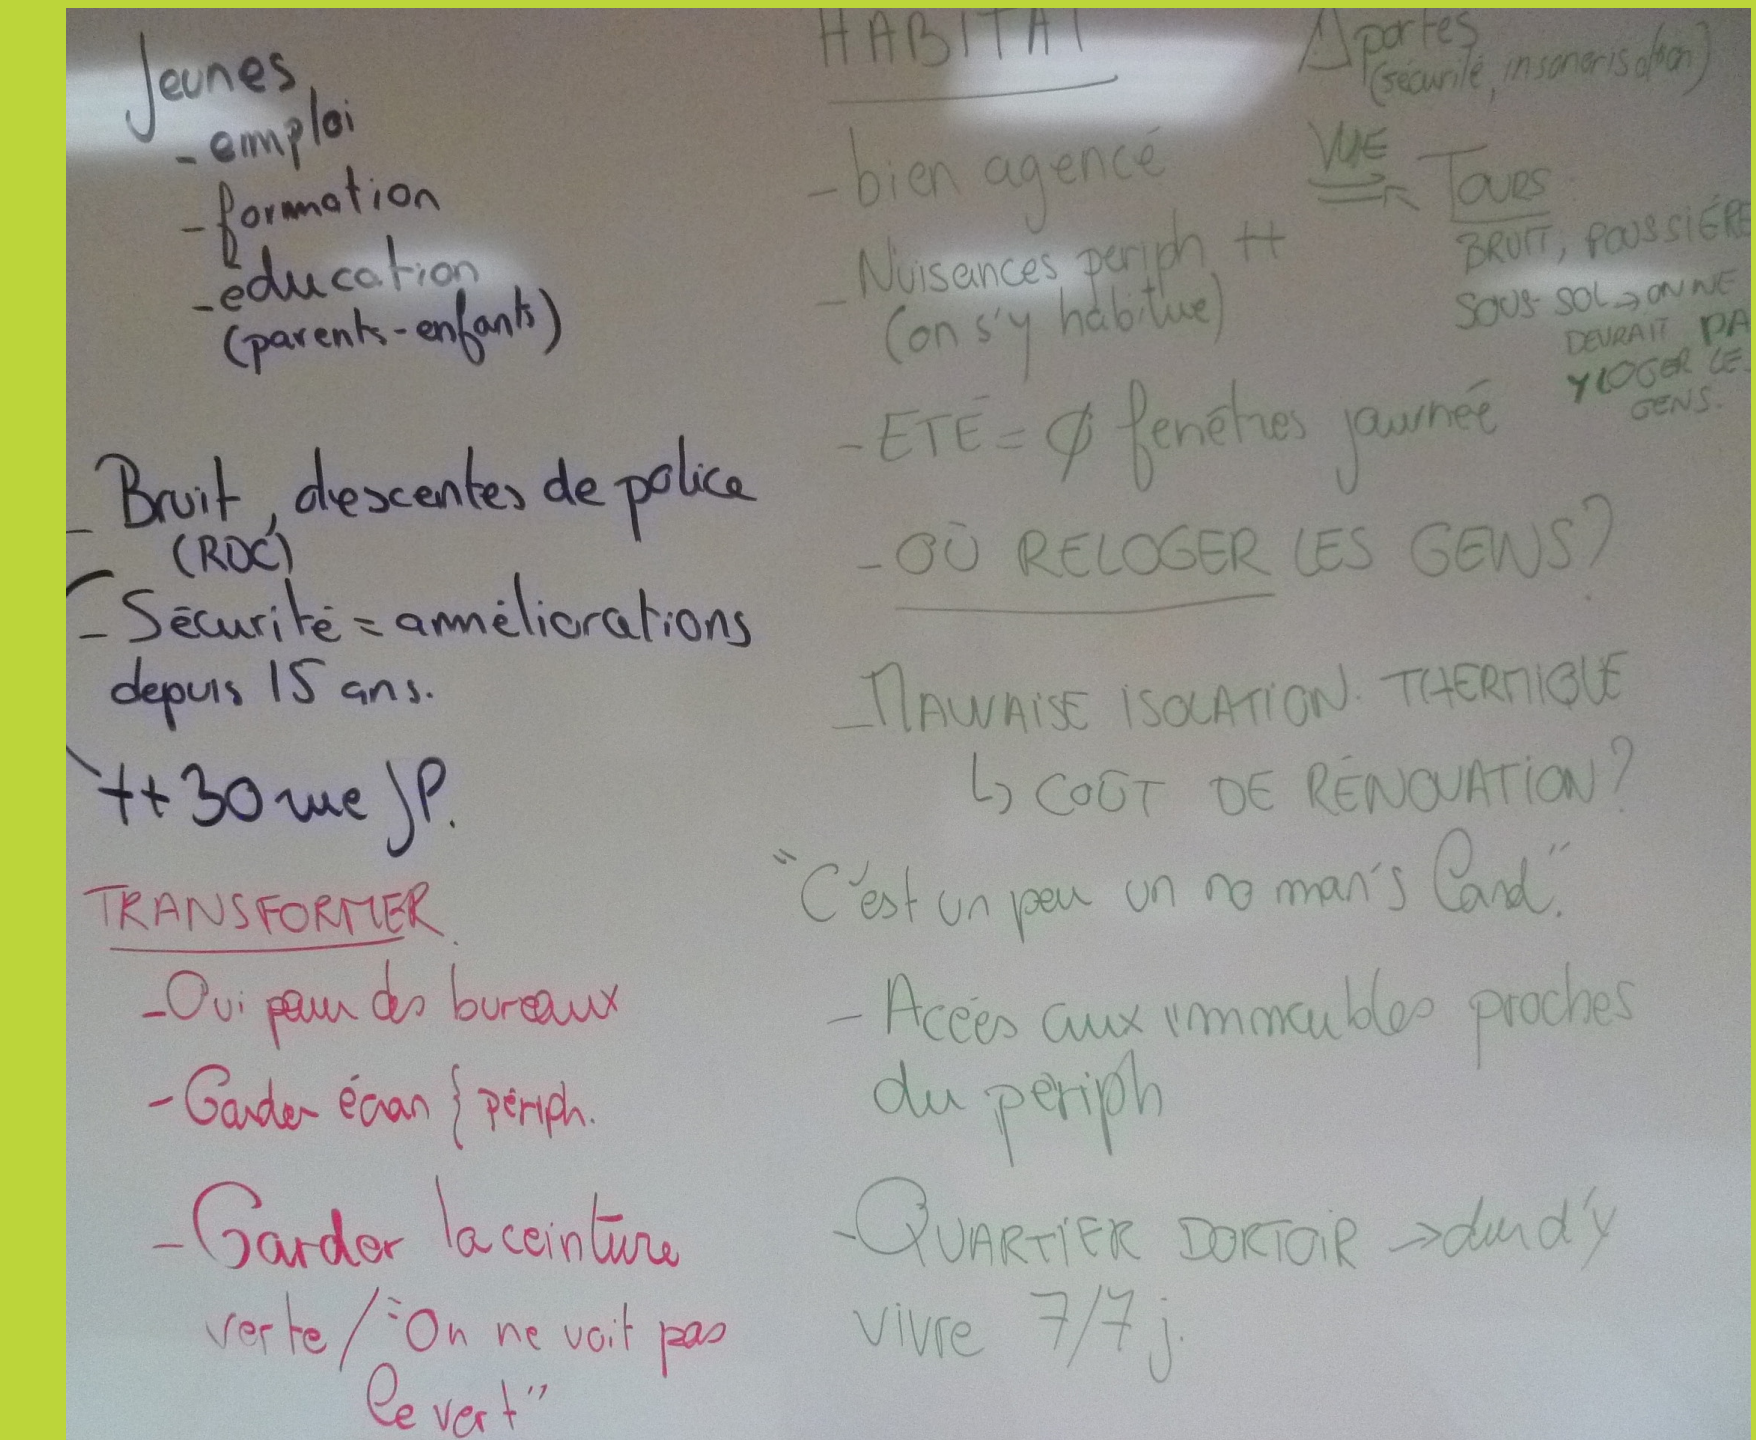 Jeunes
- emploi
- formation
- education
(parents-enfants)
- Bruit, descentes de police
(RDC)
- Sécurité = amméliorations
depuis 15 ans.
++ 30 rue JP.
TRANSFORMER
- Oui pour des bureaux
- Garder écran { périph.
- Garder la ceinture
verte / "On ne voit pas
le vert"
HABITAT
- bien agencé
- Nuisances periph ++
(on s'y habitue)
- ETÉ = Ø fenêtres journée
- OÙ RELOGER LES GENS?
- MAUVAISE ISOLATION THERMIQUE
↳ COÛT DE RÉNOVATION?
"C'est un peu un no man's land."
- Accès aux immeubles proches
du périph
- QUARTIER DORTOIR → dur d'y
vivre 7/7 j.
⚠ portes
(sécurité, insonorisation)
VUE
TOURS
BRUIT, POUSSIÈRE
SOUS-SOL → ON NE
DEVRAIT PA
Y LOGER LE
GENS.